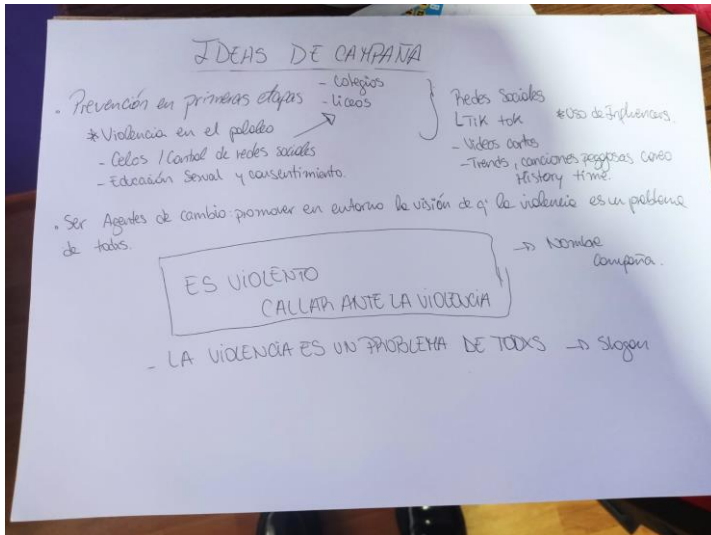 IDEAS DE CAMPAÑA
. Prevención en primeras etapas
- Colegios
- Liceos
* Violencia en el pololeo
- Celos / Control de redes sociales
- Educación Sexual y consentimiento.
Redes Sociales
Tik tok * Uso de Influencers.
- Videos cortos
- Trends, canciones pegajosas como
History time.
. Ser Agentes de cambio: promover en entorno la visión de q' la violencia es un problema
de todxs.
ES VIOLENTO
CALLAR ANTE LA VIOLENCIA
→ Nombre
campaña.
- LA VIOLENCIA ES UN PROBLEMA DE TODXS → Slogan